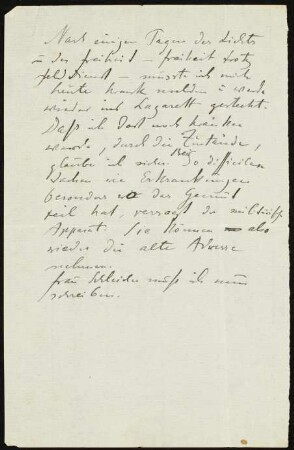 Nach einigen Tagen des Lichts
u der Freiheit – Freiheit trotz
Felddienst – musste ich mich
heute krank melden u werde
wieder ins Lazarett gesteckt.
Daß ich dort noch kränker
werde, durch die Zustände,
glaube ich sicher. Bei so difficilen
Sachen wie Erkrankungen
besonders wo das Gemüt
teil hat, versagt der militärische
Apparat. Sie können also
wieder die alte Adresse
nehmen.
Frau muß ich nun
schreiben.